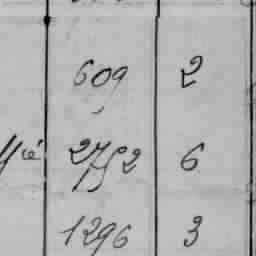 609 2
2752 6
1296 3